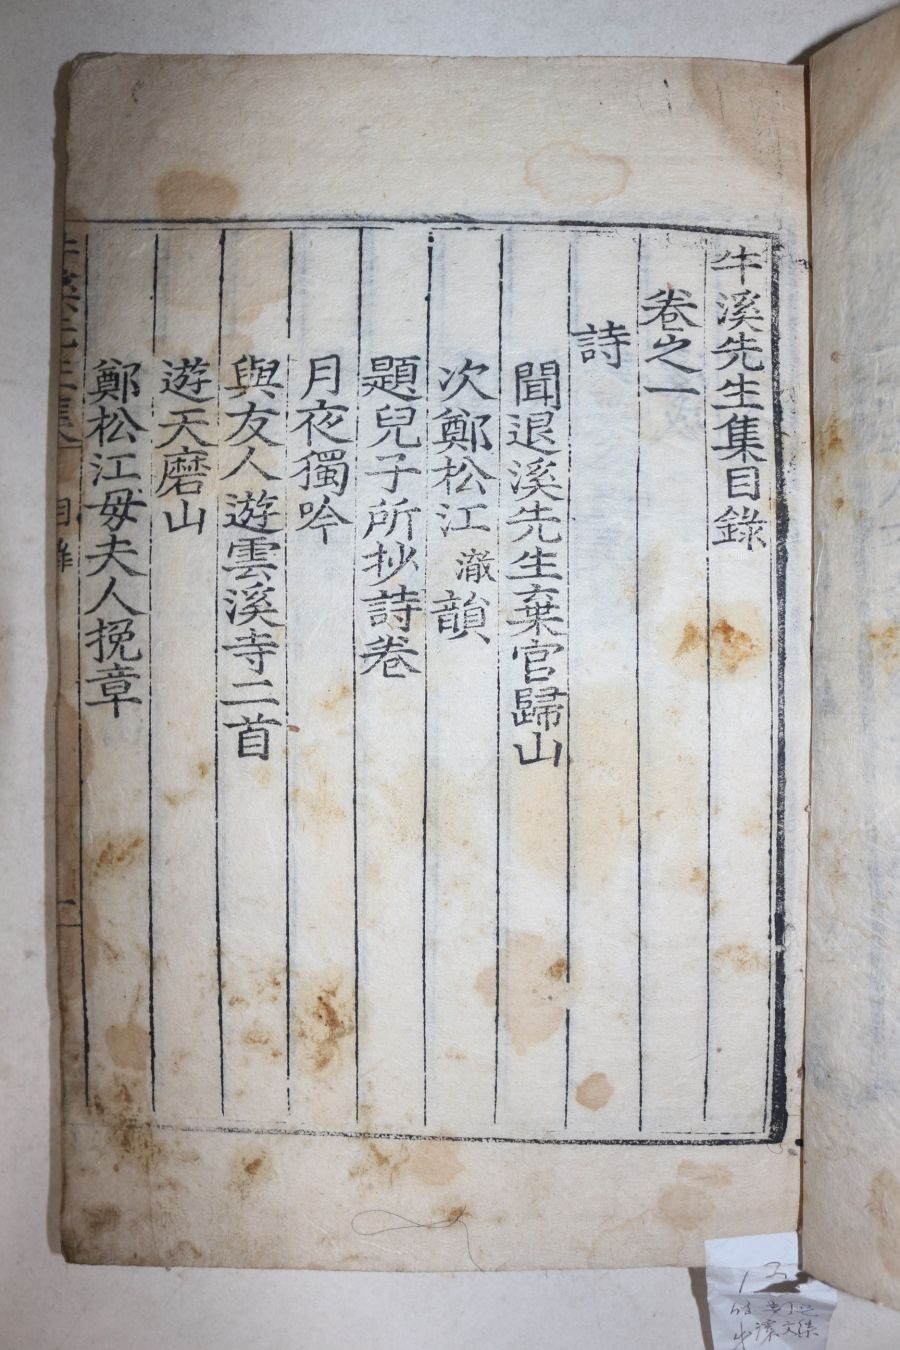 牛溪先生集目錄
卷之一
詩
聞退溪先生棄官歸山
次鄭松江澈韻
題兒子所抄詩卷
月夜獨吟
與友人遊雲溪寺二首
遊天磨山
鄭松江母夫人挽章
一
13
牛溪文集